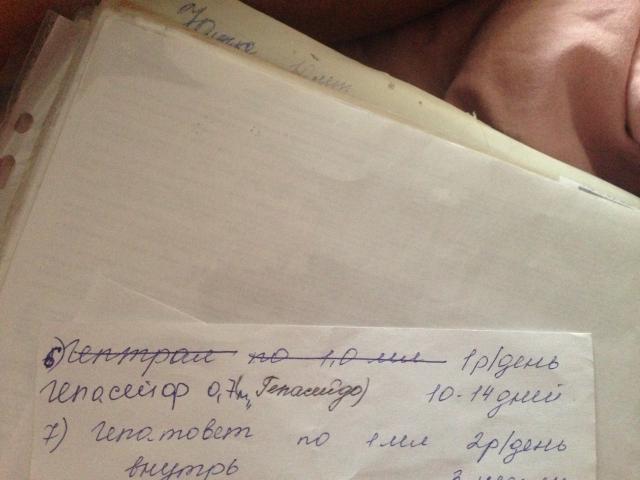 Юлька
12 лет
6) Гептрал по 1,0 мл 1р/день
Гепасейф 0,7 мл „Гепасейфо) 10-14 дней
7) Гепатовет по 1 мл 2р/день
внутрь